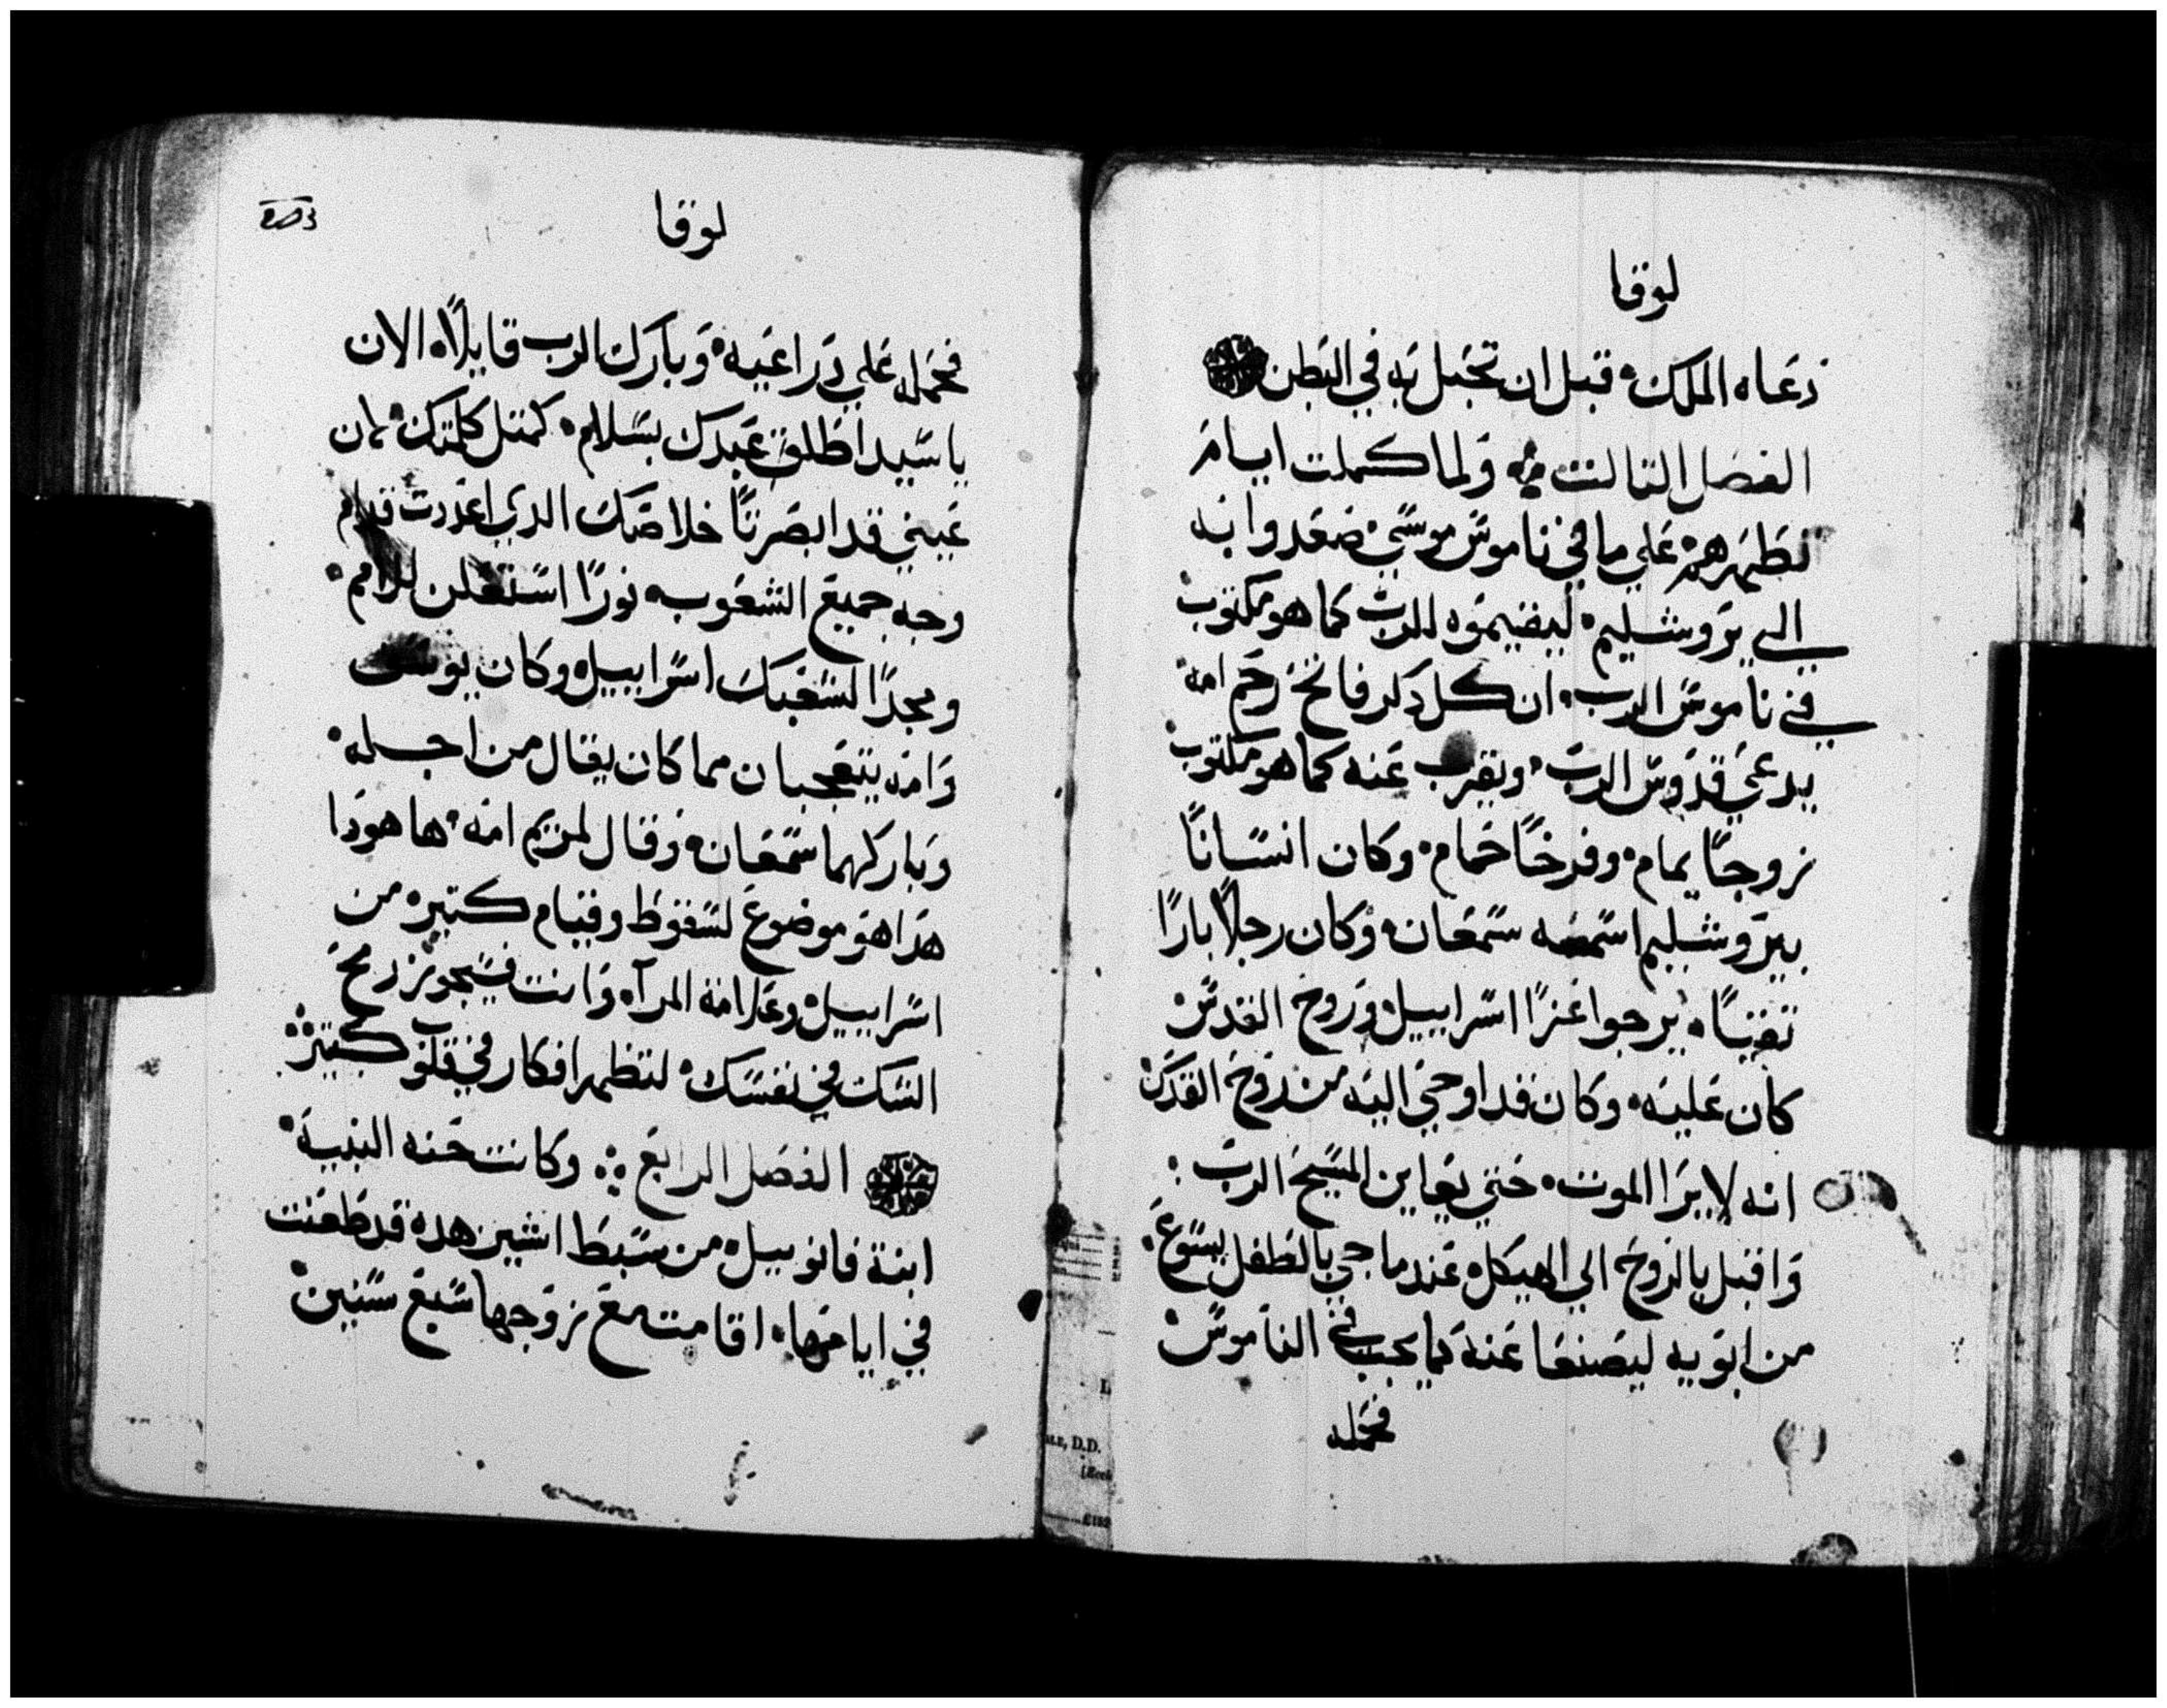 لوقا
دعاه الملاك قبل ان تحبل به في البطن
الفصل التالت ولما كملت ايام
تطهيرهم علي ما في ناموس موسي صعدوا به
الي يروشليم ليقيموه للرب كما هو مكتوب
في ناموس الرب ان كل دكر فاتح رحم امه
يدعي قدوس الرب ويقرب عنه كما هو مكتوب
زوجا يمام وفرخا حمام وكان انسانا
بيروشليم اسمه سمعان وكان رجلا بارا
تقيا يرجوا عزا اسراييل وروح القدس
كان عليه وكان قد اوحي اليه من روح القدس
انه لا يرا الموت حتي يعاين المسيح الرب
واقبل بالروح الي الهيكل عند ما جي بالطفل يسوع
من ابويه ليصنعا عنه كما يجب في الناموس
فحمله
لوقا
فحمله علي دراعيه وبارك الرب قايلا الان
يا سيد اطلق عبدك بسلام كمتل كلمتك لان
عيني قد ابصرتا خلاصك الدي اعددت قدام
وجه جميع الشعوب نورا استعلن للامم
ومجدا لشعبك اسراييل وكان يوسف
وامه يتعجبان مما كان يقال من اجله
وباركهما سمعان وقال لمريم امه ها هودا
هدا هو موضوع لسقوط وقيام كتيره من
اسراييل وعلامة المرآه وانت فسيجوز رمح
الشك في نفسك لتظهر افكار في قلوب كتيره
الفصل الرابع وكانت حنه النبية
ابنة فانوييل من سبط اشير هده قد طعنت
في ايامها اقامت مع زوجها سبع سنين